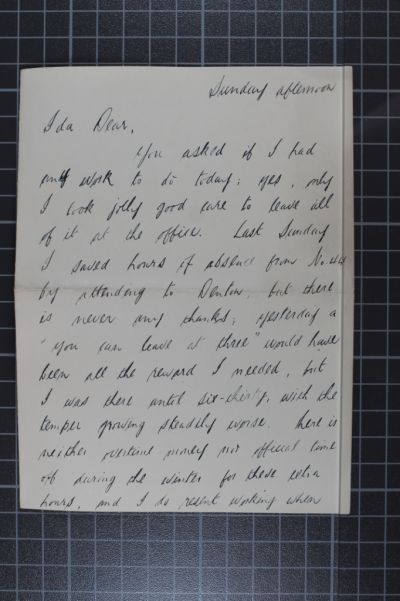 Sunday afternoon
Ida Dear,
You asked if I had
any work to do today; yes, only
I took jolly good care to leave all
of it at the office. Last Sunday
I saved hours of absence from
by attending to Denton, but there
is never any thanks; yesterday a
"you can leave at three" would have
been all the reward I needed, but
I was there until six-thirty, with the
temper growing steadily worse. There is
neither overtime money nor official time
off during the winter for these extra
hours, and I do resent working when